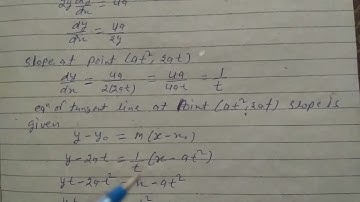 2y dy/dx = 4a
dy/dx = 4a/2y
slope at point (at², 2at)
dy/dx = 4a/2(2at) = 4a/4at = 1/t
eqⁿ of tangent line at point (at², 2at) slope is
given
y-y₀ = m(x-x₀)
y-2at = 1/t (x-at²)
yt-2at² = x-at²